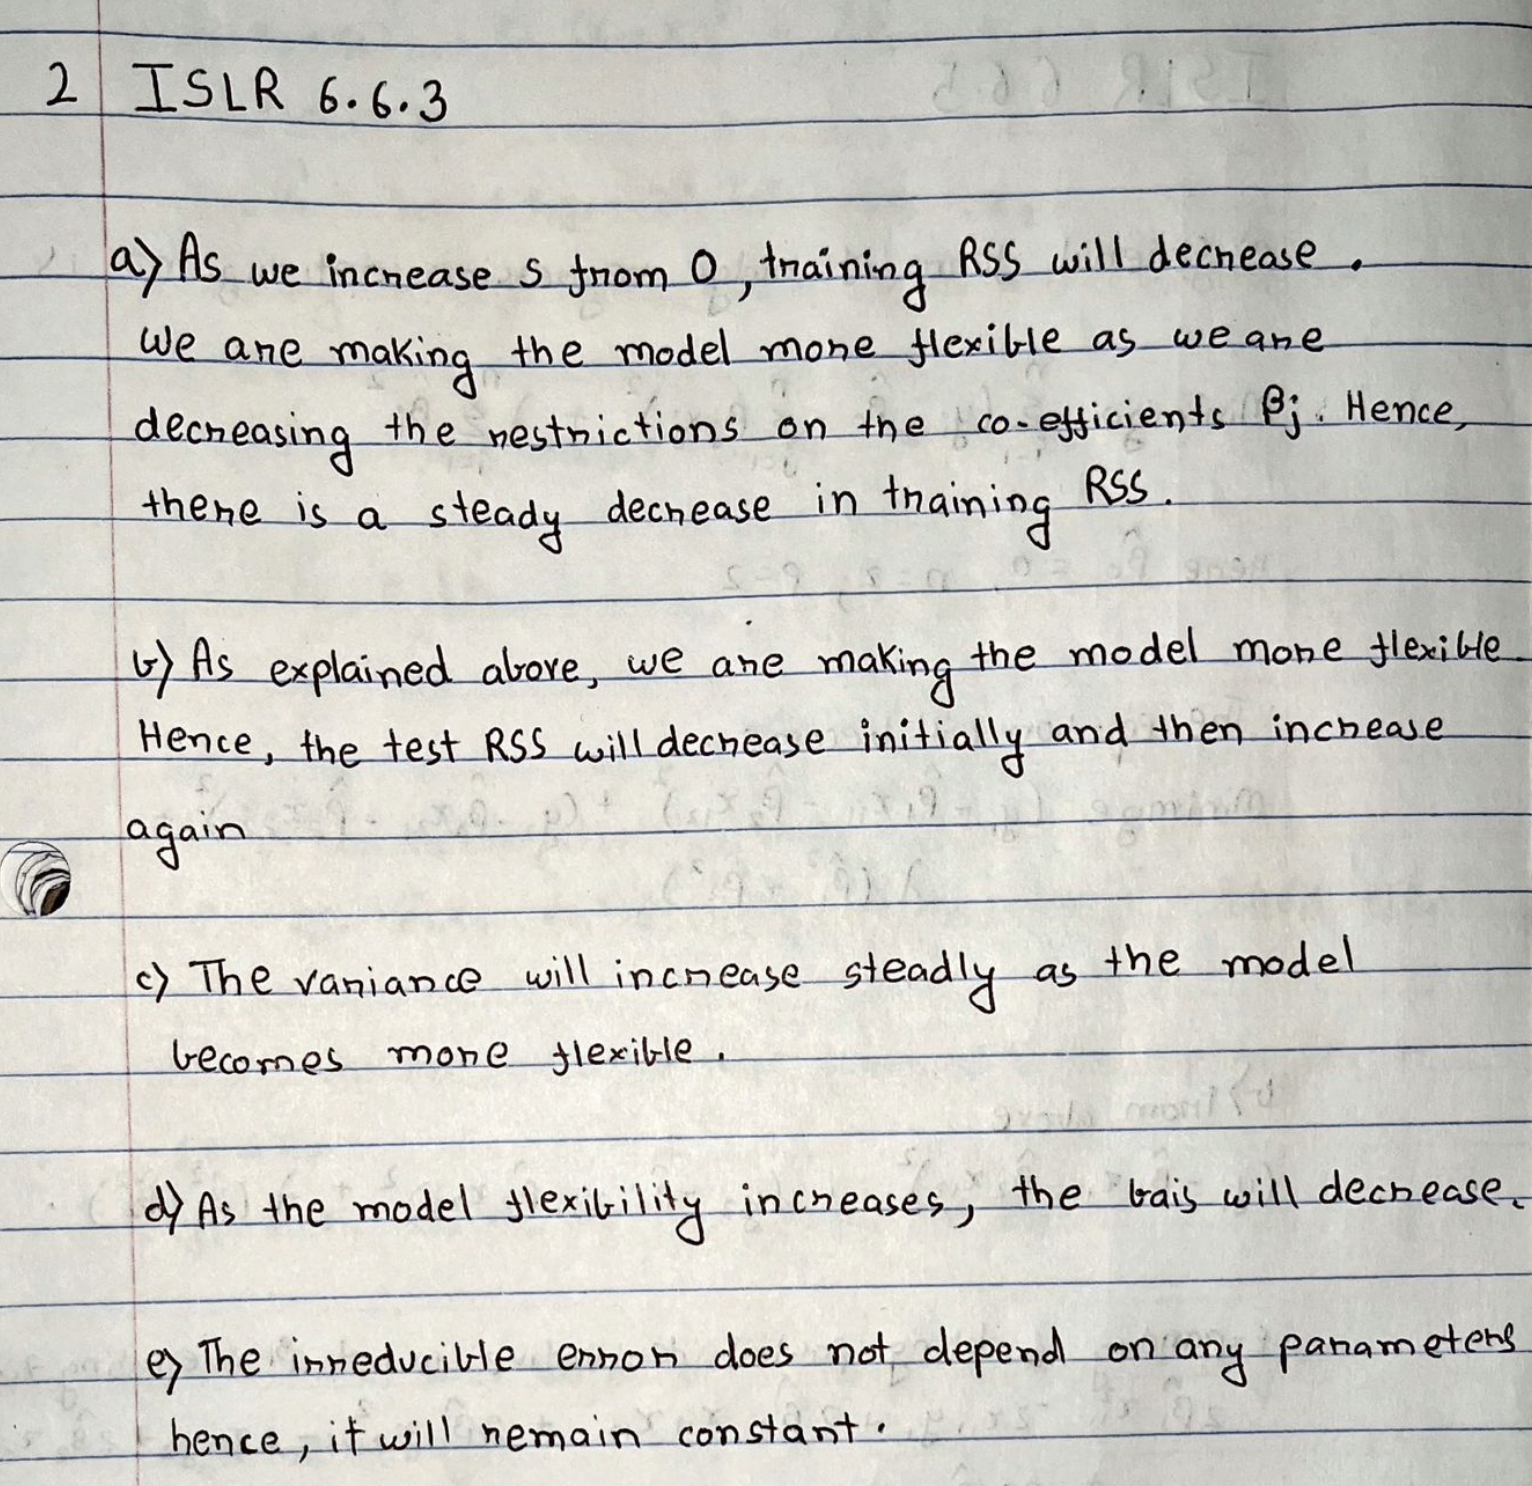 2 ISLR 6.6.3
a) As we increase s from 0, training RSS will decrease.
We are making the model more flexible as we are
decreasing the restrictions on the co-efficients βj. Hence,
there is a steady decrease in training RSS.
b) As explained above, we are making the model more flexible
Hence, the test RSS will decrease initially and then increase
again
c) The variance will increase steadily as the model
becomes more flexible.
d) As the model flexibility increases, the bais will decrease.
e) The irreducible error does not depend on any parameters
hence, it will remain constant.